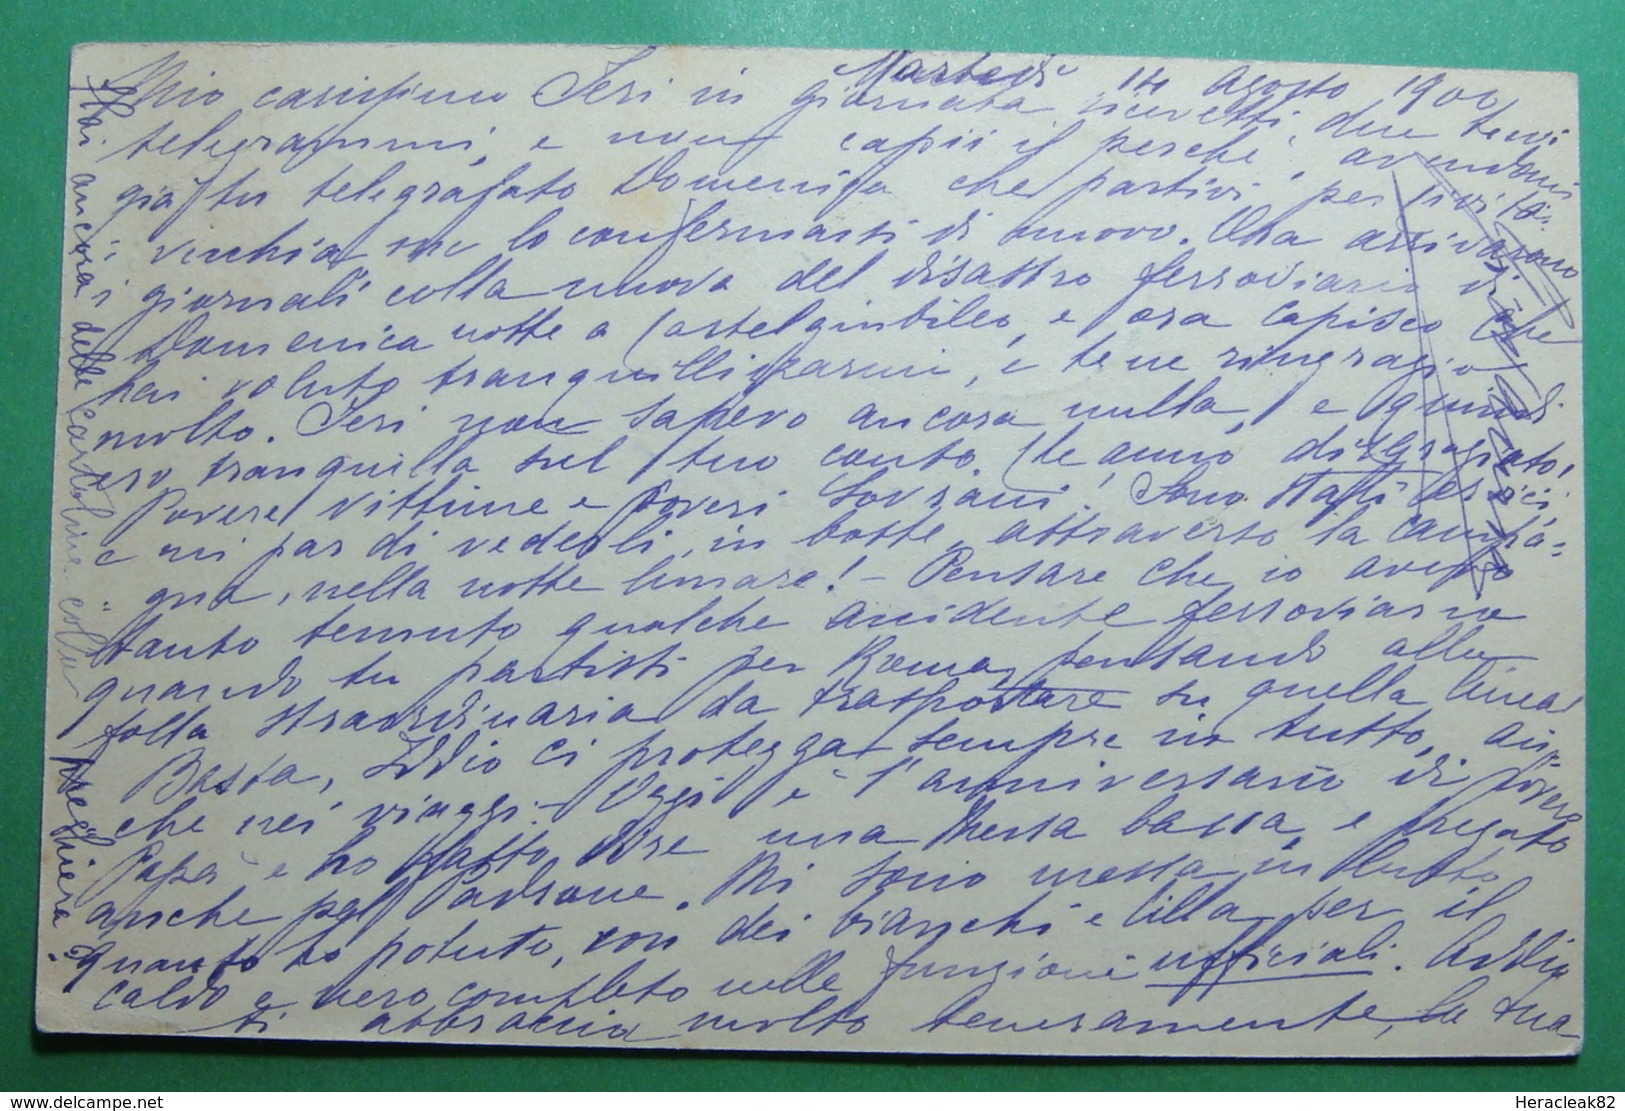 Martedì 14 Agosto 1900
Mio carissimo Ieri in giornata ricevetti due tuoi
telegrammi, e non capii il perchè avendomi
già tu telegrafato Domenica che partivi per Civita=
=vecchia me lo confermasti di nuovo. Ora arrivarono
i giornali colla nuova del disastro ferroviario di
Domenica notte a Castelgiubileo, e ora capisco che
hai voluto tranquillizzarmi, e te ne ringrazio
molto. Ieri non sapevo ancora nulla, e quindi
ero tranquilla sul tuo conto. Che anno disgraziato!
Povere vittime e poveri Sovrani! Sono stati eroici
e mi par di vederli, in botte, attraverso la campa=
=gna, nella notte lunare! - Pensare che io avevo
tanto temuto qualche accidente ferroviario
quando tu partisti per Roma, pensando alla
folla straordinaria da trasportare su quella linea!
Basta, Iddio ci protegga sempre in tutto, an=
che nei viaggi. - Oggi è l'anniversario di povero
Papà e ho fatto dire una Messa bassa e pregato
anche pel Padrone. Mi sono messa in lutto
quanto ho potuto, con dei bianchi e lilla per il
caldo e nero completo nelle funzioni ufficiali. Addio
ti abbraccio molto teneramente, la tua
Hai ancora delle cartoline colle preghiere?
Heracleak82
delcampe.net